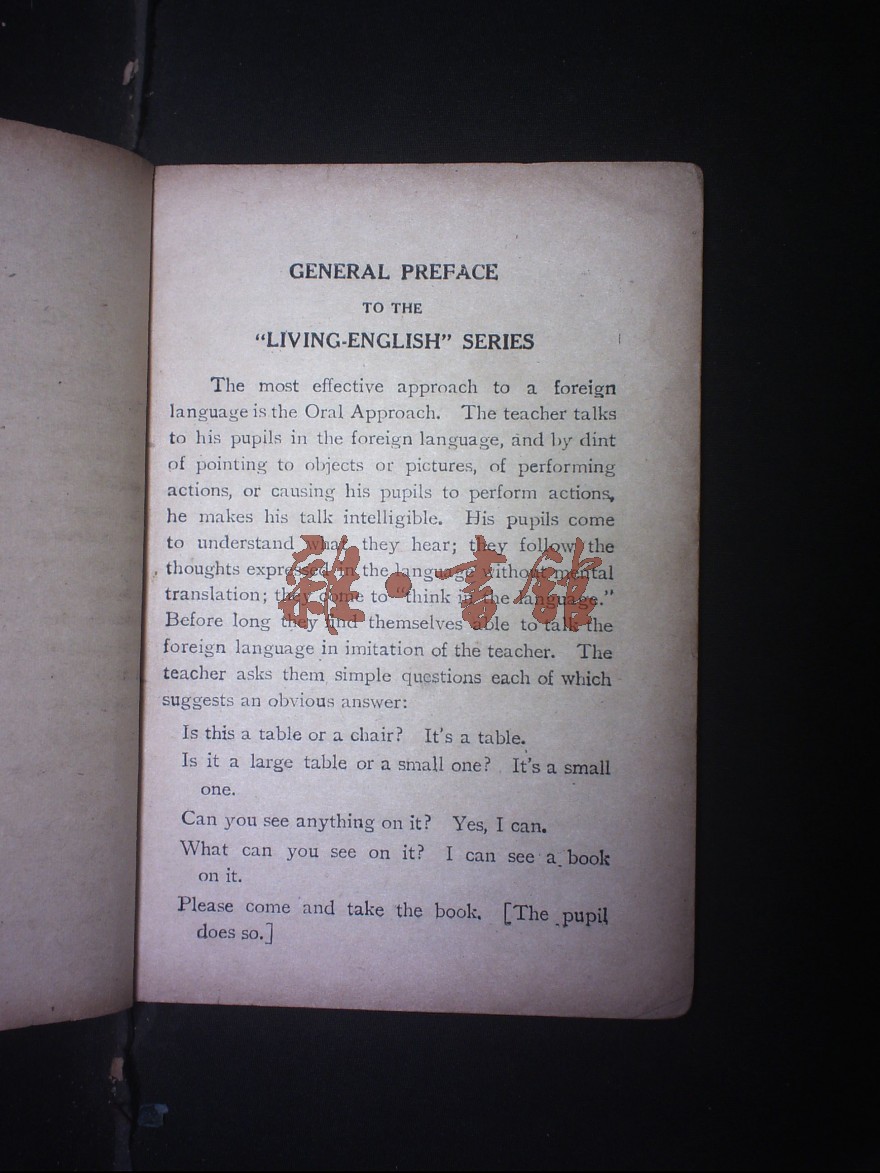 GENERAL PREFACE
TO THE
“LIVING-ENGLISH” SERIES
The most effective approach to a foreign
language is the Oral Approach. The teacher talks
to his pupils in the foreign language, and by dint
of pointing to objects or pictures, of performing
actions, or causing his pupils to perform actions,
he makes his talk intelligible. His pupils come
to understand what they hear; they follow the
thoughts expressed in the language without mental
translation; they come to “think in the language.”
Before long they find themselves able to talk the
foreign language in imitation of the teacher. The
teacher asks them simple questions each of which
suggests an obvious answer:
Is this a table or a chair? It’s a table.
Is it a large table or a small one? It’s a small
one.
Can you see anything on it? Yes, I can.
What can you see on it? I can see a book
on it.
Please come and take the book. [The pupil
does so.]
雜·書館